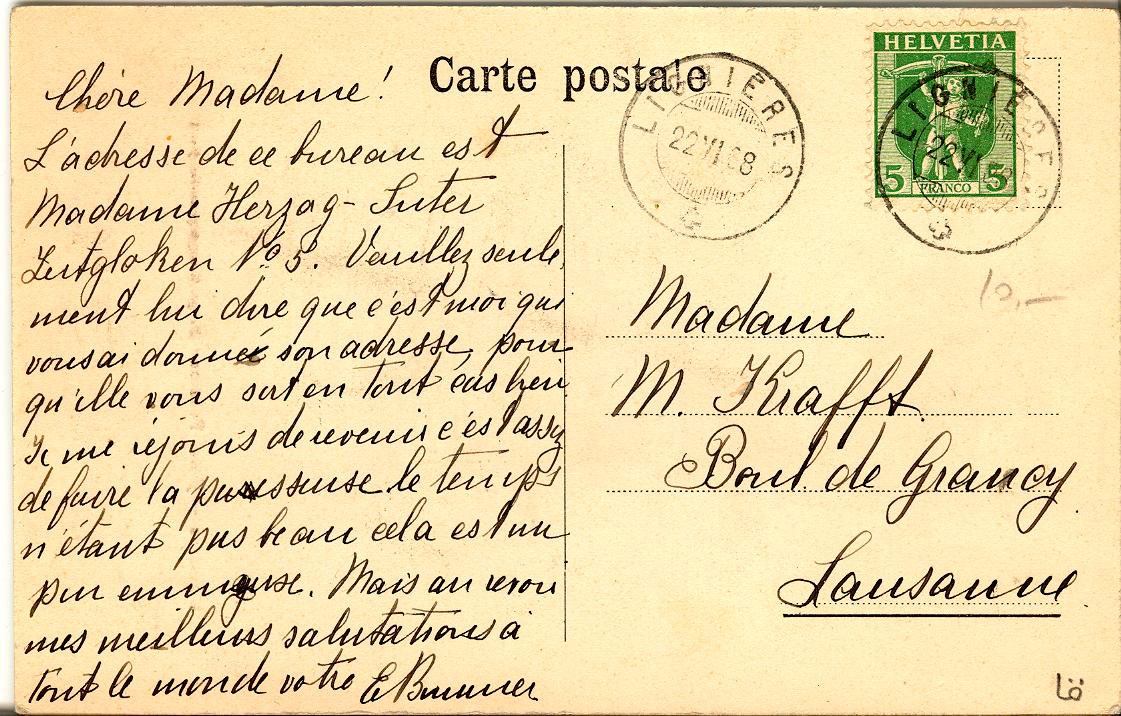 Carte postale
HELVETIA
5 FRANCO 5
LIGNIÈRES
22 VI 08
LIGNIÈRES
22 VI
10,-
Chère Madame!
L'adresse de ce bureau est
Madame Herzog-Suter
Zeitgloken No 5. Veuillez seule
ment lui dire que c'est moi qui
vous ai donné son adresse, pour
qu'elle vous sert en tout cas bien
Je me réjouis de revenir c'est assez
de faire la paresseuse le temps
n'étant pas beau cela est un
peu ennuyeuse. Mais au revoir
mes meilleurs salutations à
tout le monde votre E Brunner
Madame
M. Krafft
Boul. de Grancy
Lausanne